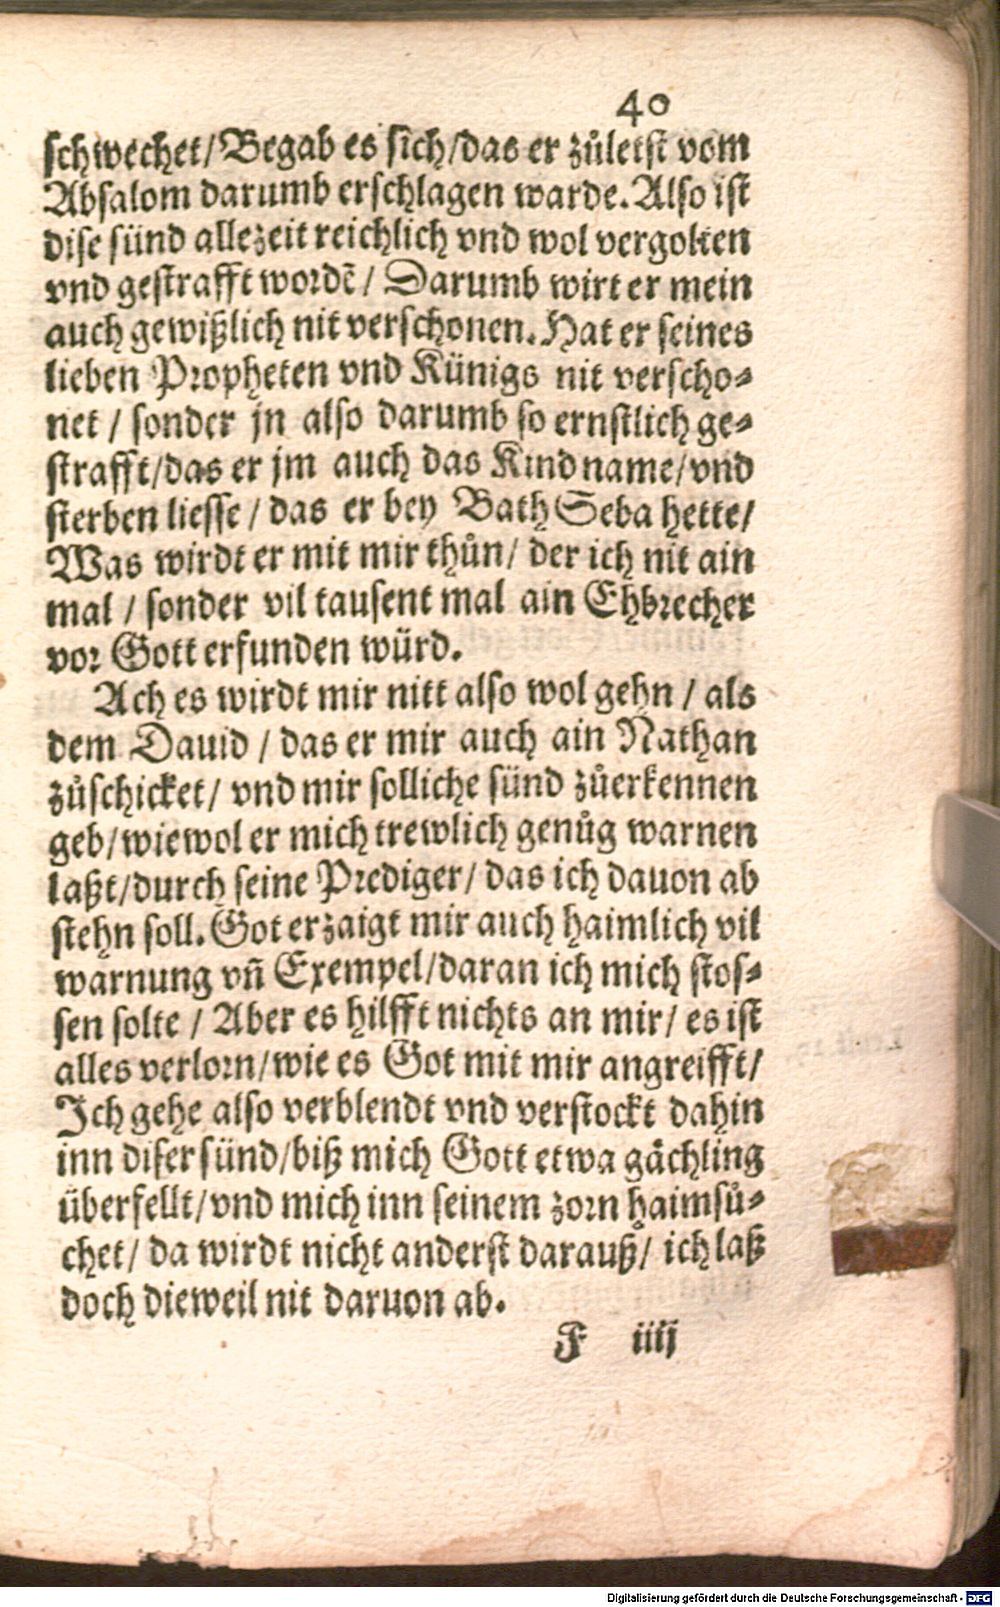 40
schwechet/Begab es sich/das er zůletst vom
Absalom darumb erschlagen warde. Also ist
dise sünd allezeit reichlich vnd wol vergolten
vnd gestrafft wordẽ/ Darumb wirt er mein
auch gewißlich nit verschonen. Hat er seines
lieben Propheten vnd Künigs nit verscho-
net / sonder jn also darumb so ernstlich ge-
strafft/das er jm auch das Kind name/vnd
sterben liesse / das er bey Bath Seba hette/
Was wirdt er mit mir thůn/ der ich nit ain
mal / sonder vil tausent mal ain Ehbrecher
vor Gott erfunden würd.
Ach es wirdt mir nitt also wol gehn / als
dem Dauid / das er mir auch ain Nathan
zůschicket/ vnd mir solliche sünd zůerkennen
geb/wiewol er mich trewlich genůg warnen
laßt/durch seine Prediger/ das ich dauon ab
stehn soll. Got erzaigt mir auch haimlich vil
warnung vñ Exempel/daran ich mich stos-
sen solte / Aber es hilfft nichts an mir/ es ist
alles verlorn/wie es Got mit mir angreifft/
Ich gehe also verblendt vnd verstockt dahin
inn diser sünd/biß mich Gott etwa gåchling
überfellt/vnd mich inn seinem zorn haimsů-
chet/ da wirdt nicht anderst darauß/ ich laß
doch dieweil nit daruon ab.
F iiij
Digitalisierung gefördert durch die Deutsche Forschungsgemeinschaft - DFG